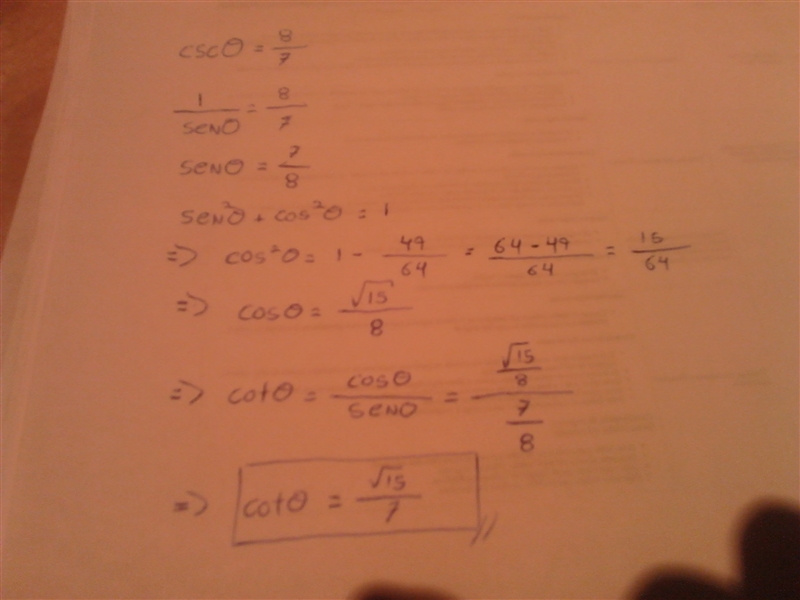 cscθ = 8/7
1/senθ = 8/7
senθ = 7/8
sen²θ + cos²θ = 1
=> cos²θ = 1 - 49/64 = (64 - 49)/64 = 15/64
=> cosθ = √15/8
=> cotθ = cosθ/senθ = (√15/8)/(7/8)
=> cotθ = √15/7 //